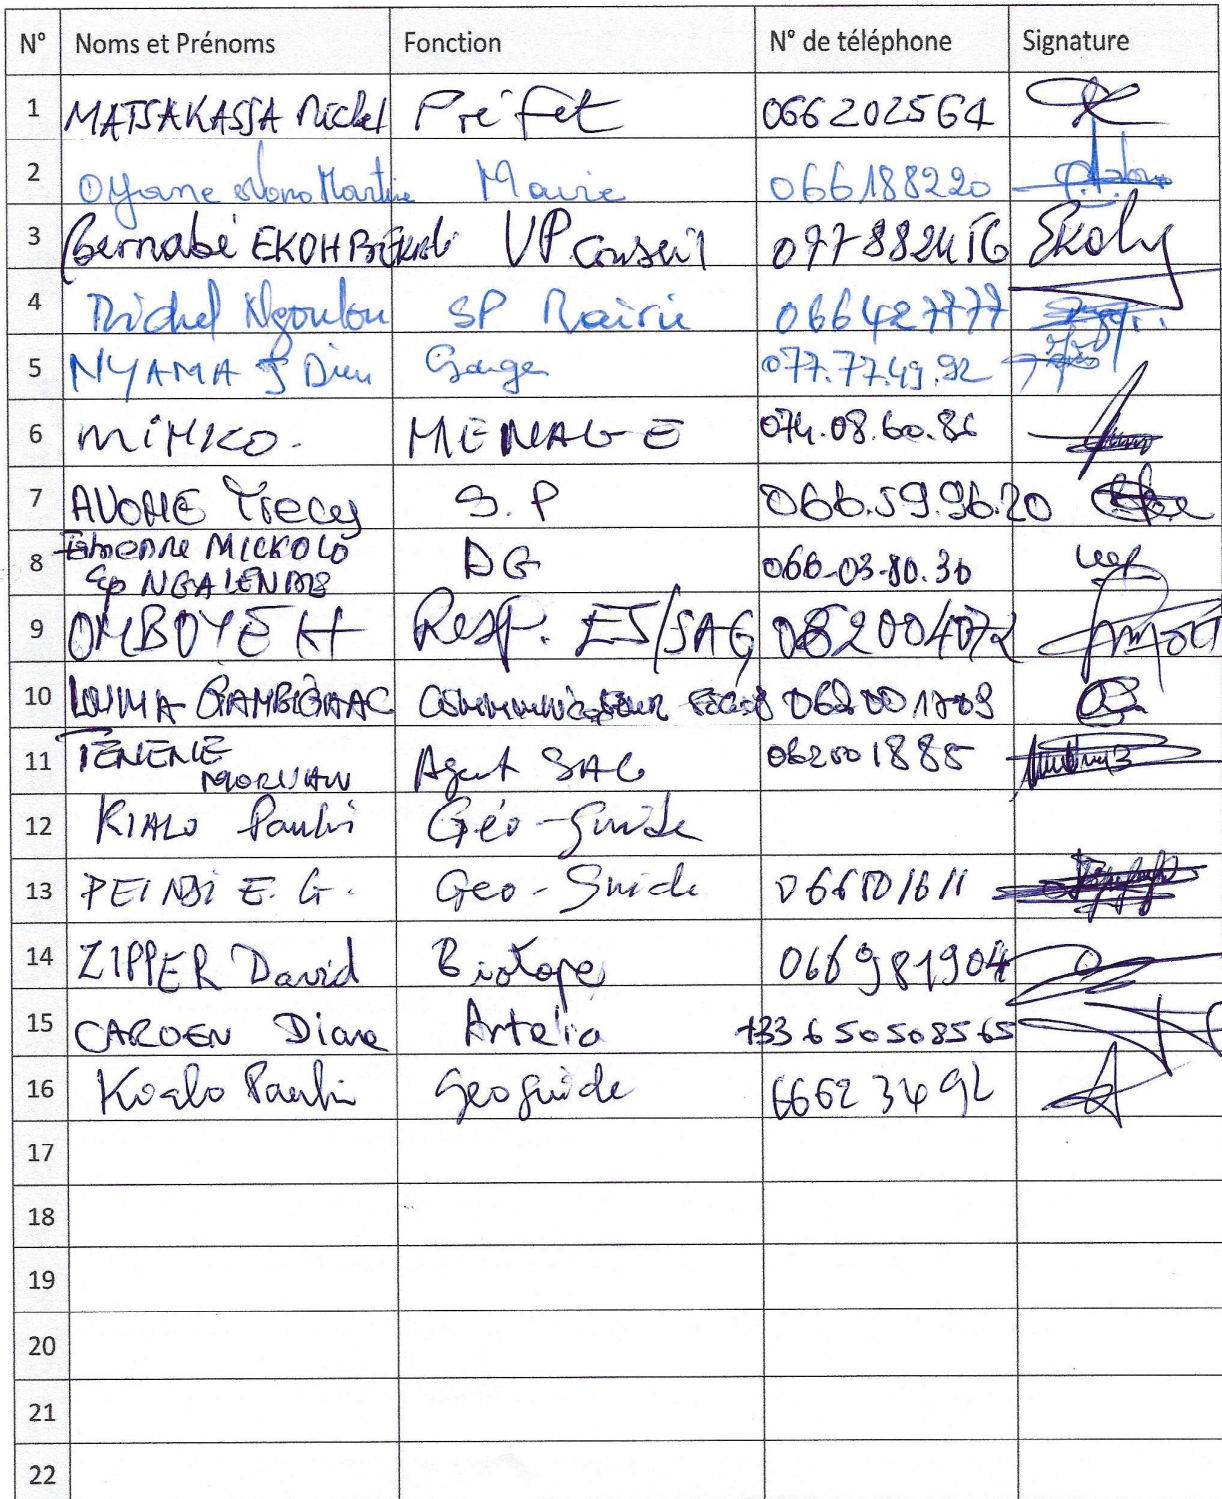 N° Noms et Prénoms Fonction N° de téléphone Signature
1 MATSAKASSA Michel Préfet 066202564
2 Oyane Nono Martine Mairie 066188220
3 Bernabé EKOH VP Conseil 077882416 Ekohy
4 Michel Ngoulou SP Mairie 066427777
5 NYAMA J Dieu 077.77.49.92
6 MIHKO. MENAGE 074.08.60.86
7 AVOME Trecy S.P 066.59.96.20
8 MICKOLO DG 066-03-80.30
ep NGALENDOB
9 OMBOYE H Resp. ES/SAG 082004072
10 LOUMA ISAAC 062001709
11 TENENE Agent SAG 062001885
MORVAN
12 KIALO Paulin Géo-Guide
13 PEINDI E. G. Geo-Guide 066501611
14 ZIPPER David Biotope 066981904
15 CAROEN Diane Artelia +33 6 50508565
16 Koalo Paulin Geoguide 66623492
17
18
19
20
21
22